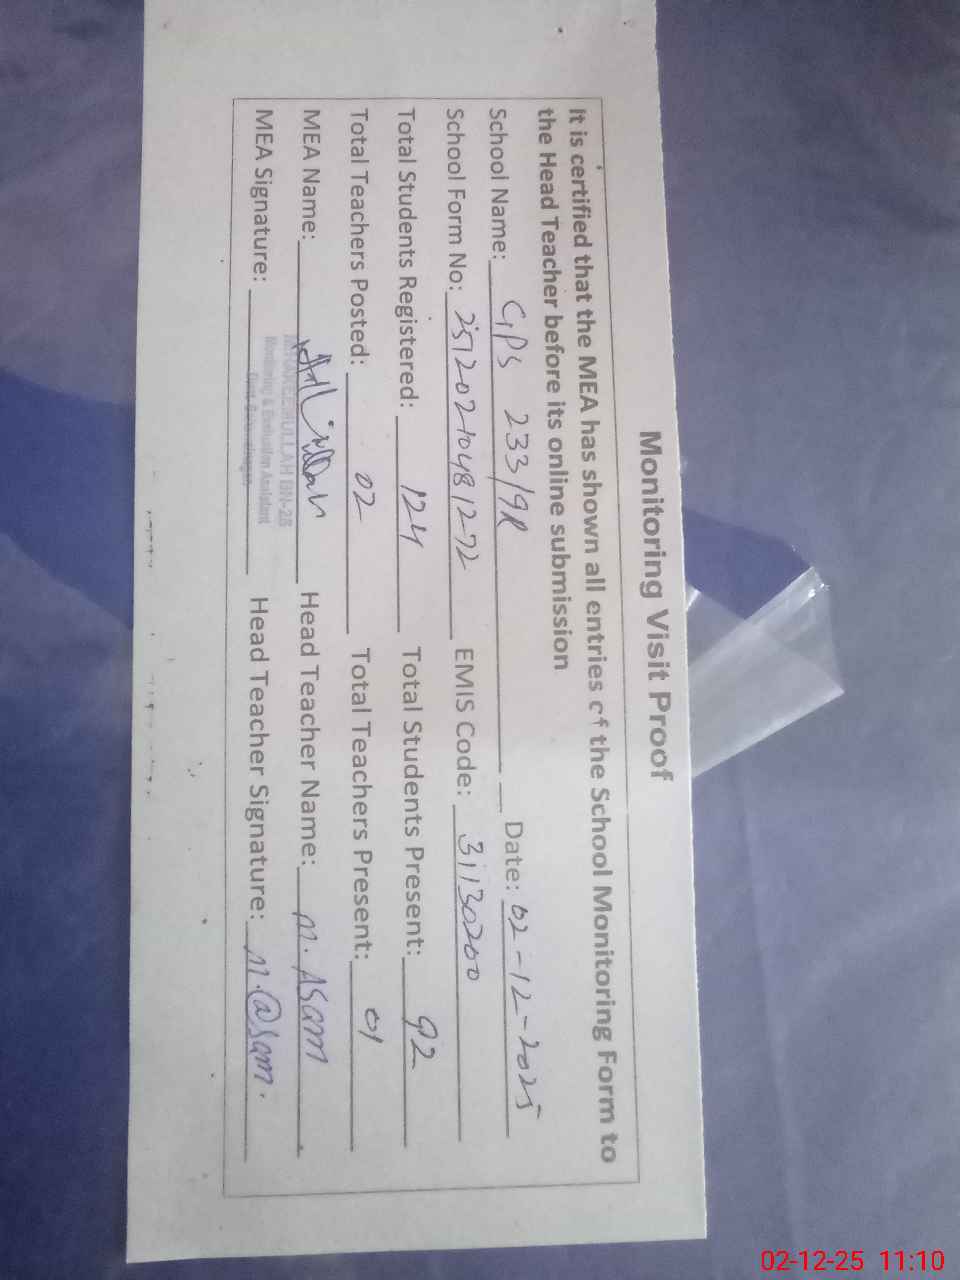 Monitoring Visit Proof
It is certified that the MEA has shown all entries of the School Monitoring Form to
the Head Teacher before its online submission
School Name: GPS 233/9R Date: 02-12-2025
School Form No: 2512021048 1272 EMIS Code: 31130200
Total Students Registered: 124 Total Students Present: 92
Total Teachers Posted: 02 Total Teachers Present: 01
MEA Name: Head Teacher Name: M. ASam
MEA Signature: Head Teacher Signature: M. @sam.
GN-28
Monitoring & Evaluation Assistant
02-12-25 11:10